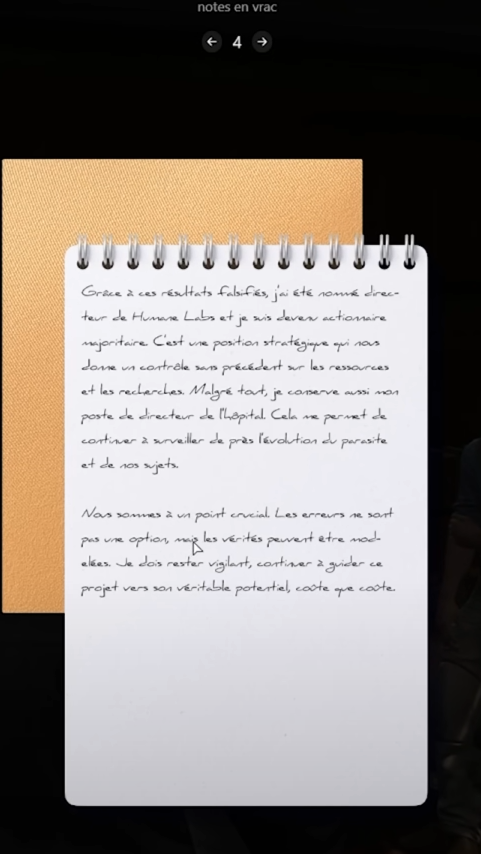 notes en vrac
4
Grâce à ces résultats falsifiés, j'ai été nommé direc-
teur de Humane Labs et je suis devenu actionnaire
majoritaire. C'est une position stratégique qui nous
donne un contrôle sans précédent sur les ressources
et les recherches. Malgré tout, je conserve aussi mon
poste de directeur de l'hôpital. Cela me permet de
continuer à surveiller de près l'évolution du parasite
et de nos sujets.
Nous sommes à un point crucial. Les erreurs ne sont
pas une option, mais les vérités peuvent être mod-
elées. Je dois rester vigilant, continuer à guider ce
projet vers son véritable potentiel, coûte que coûte.